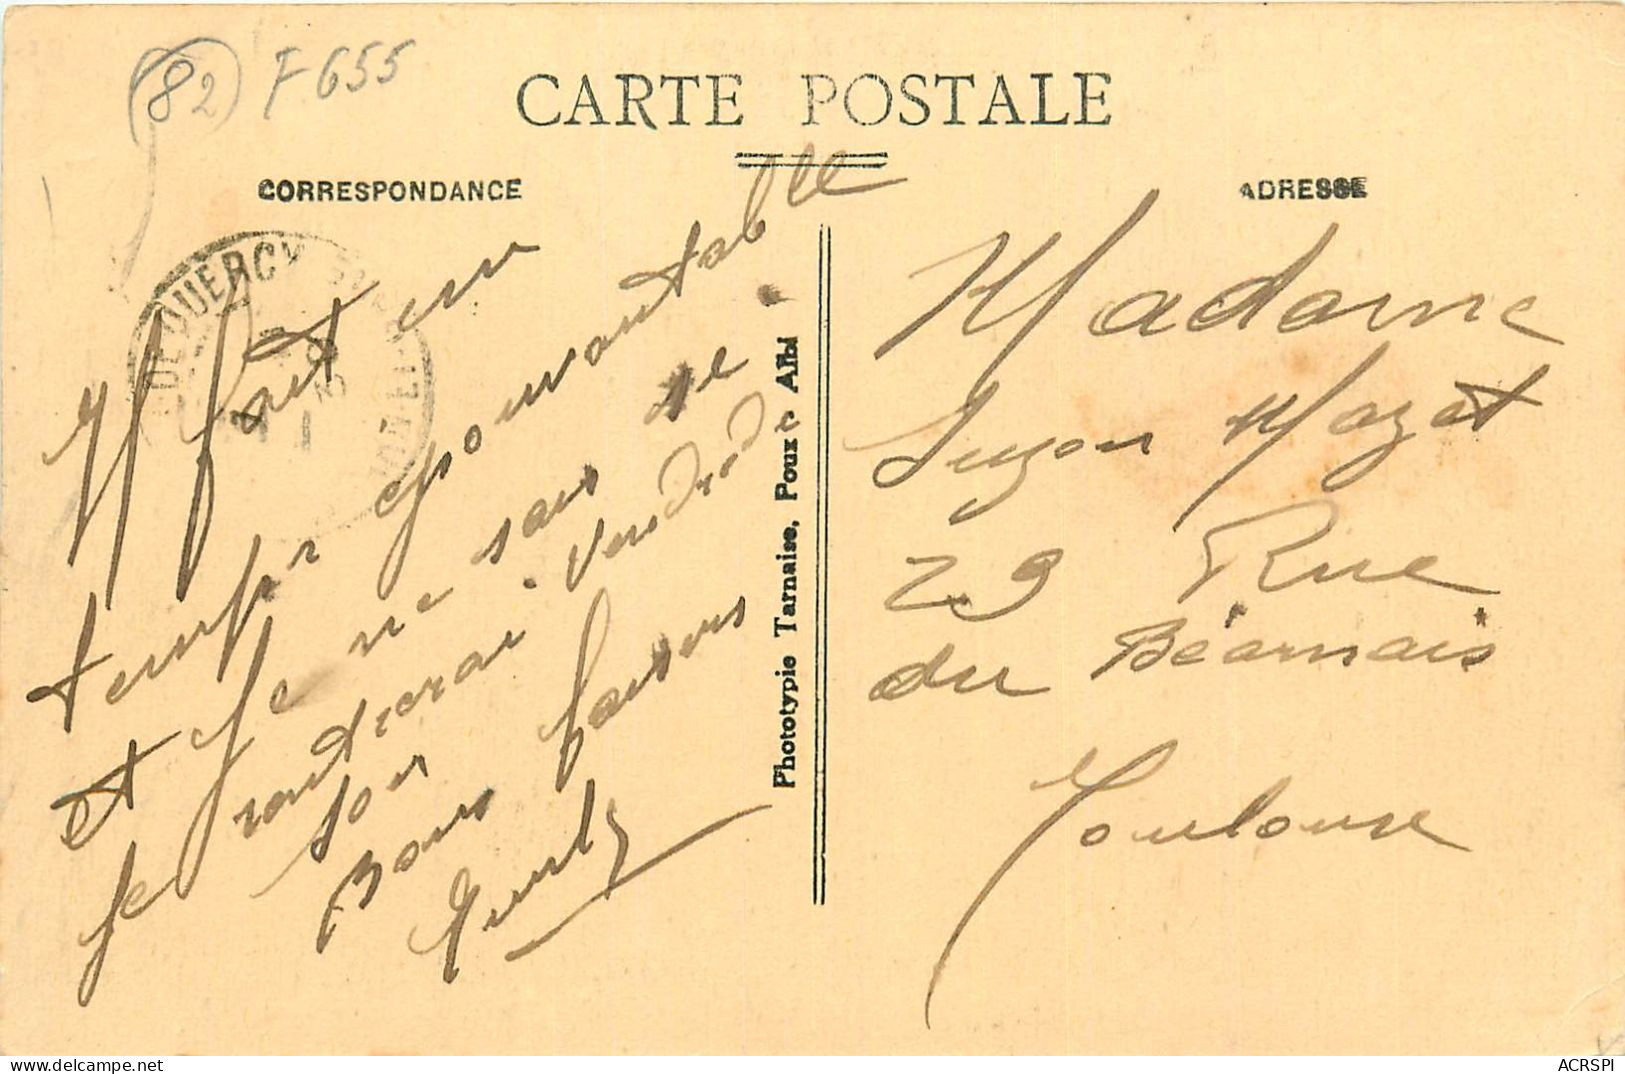 (82) F 655
CARTE POSTALE
CORRESPONDANCE
ADRESSE
Il fait un
temps épouvantable
et je ne sais se
je rentrerai vendredi
soir
Bons baisers
Phototypie Tarnaise, Poux Albi
Madame
Suzon Mazet
29 Rue
du Béarnais
Toulouse
QUERCY
ACRSPI